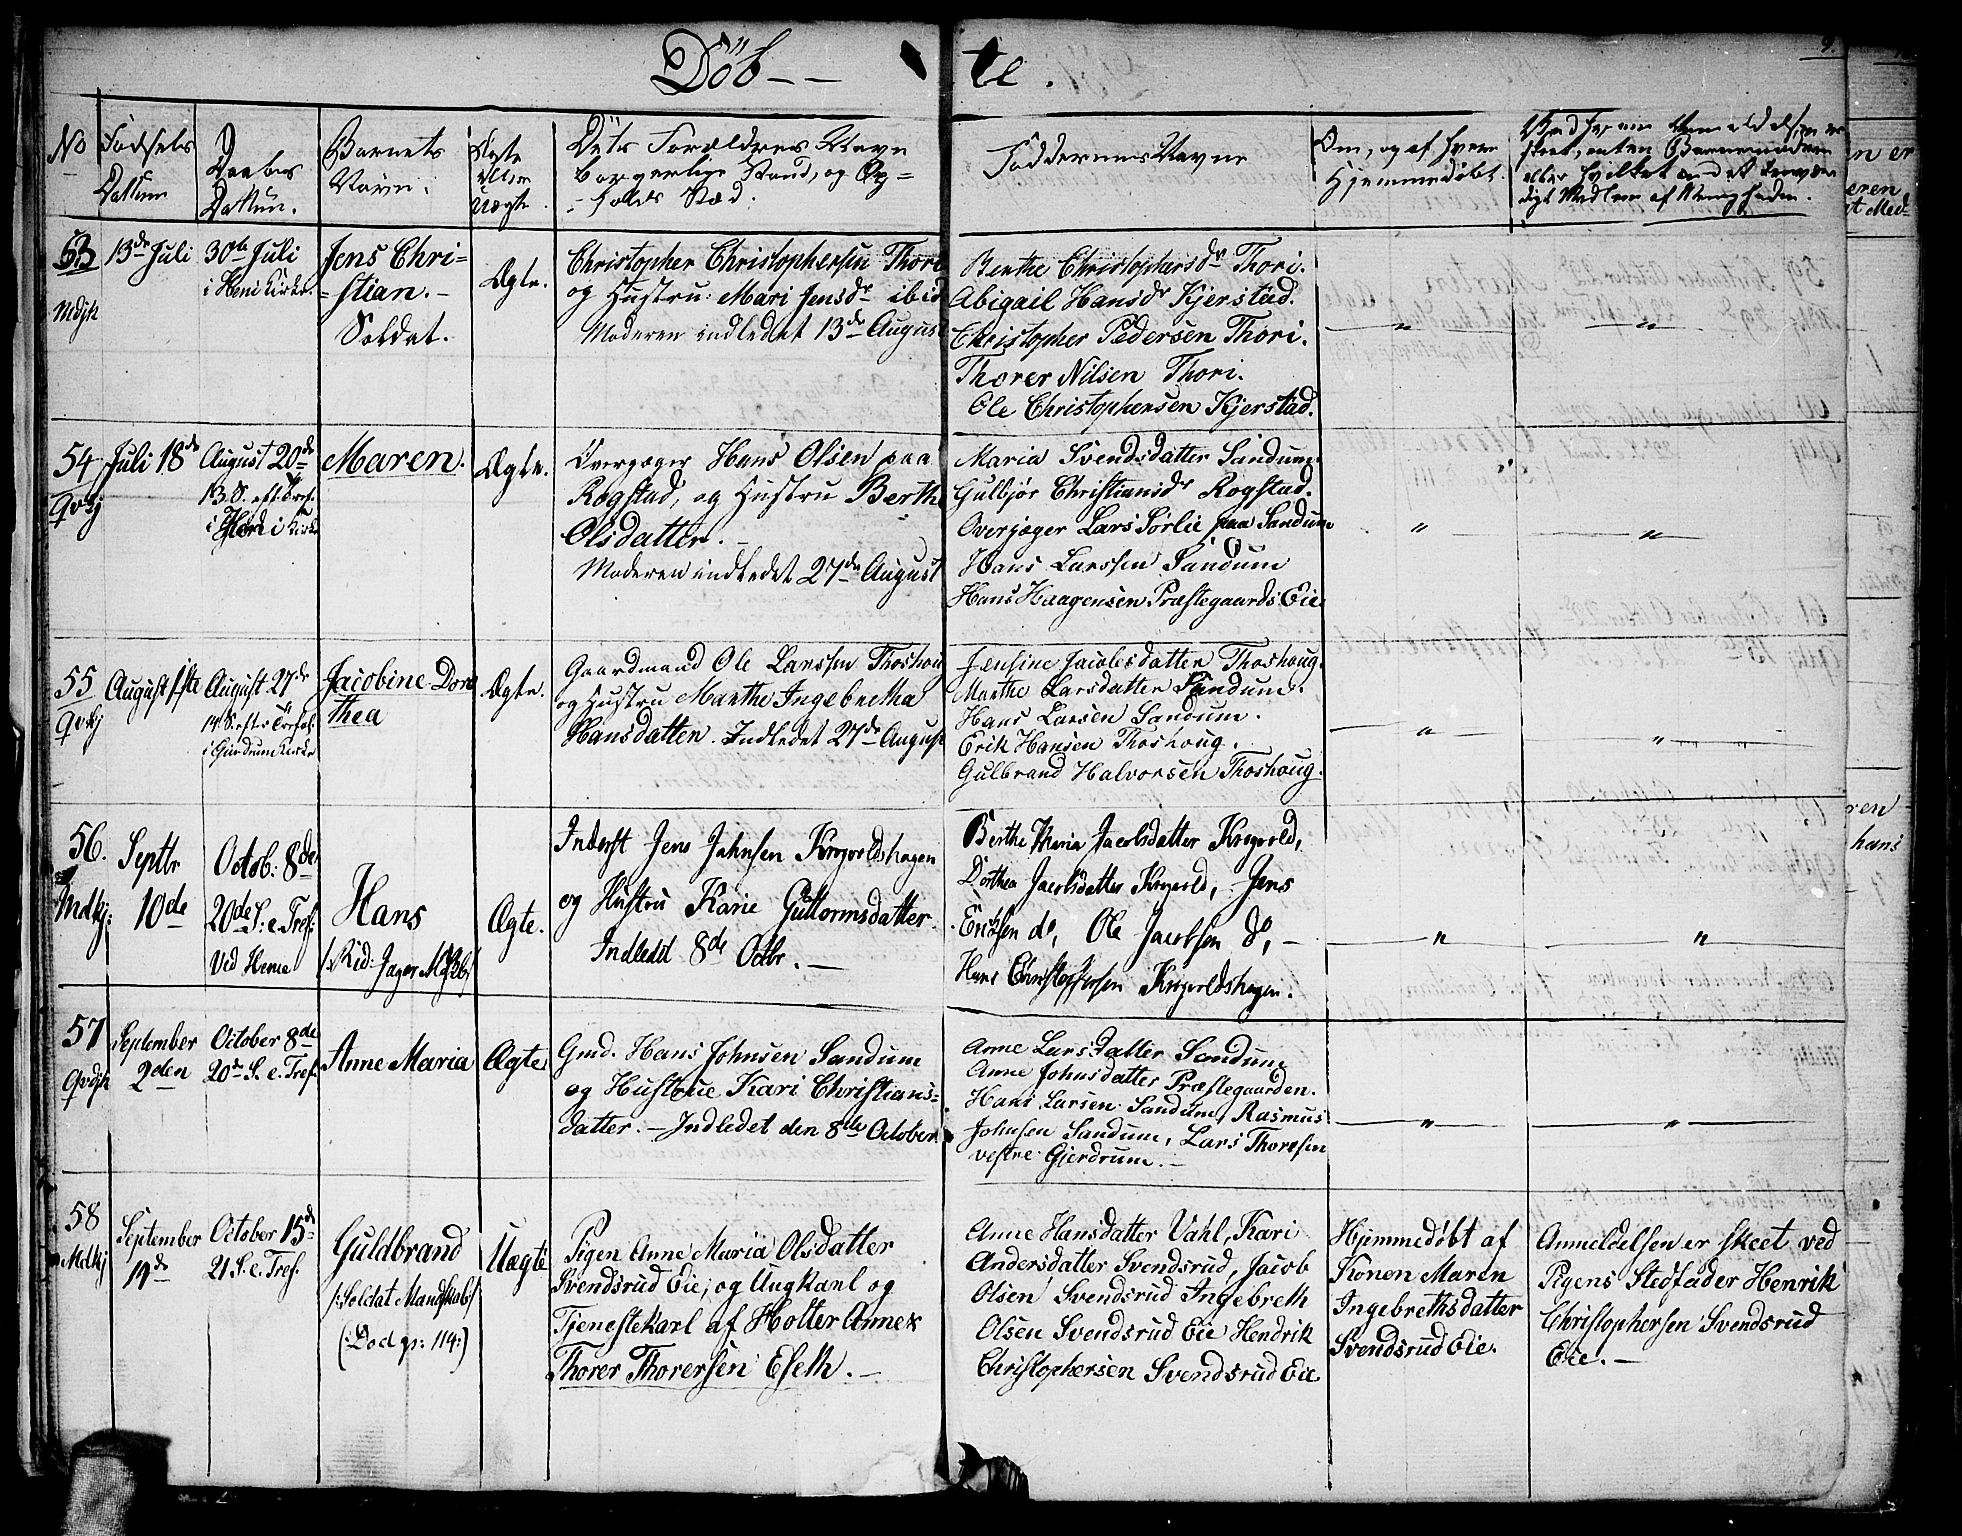 Döb-- te.
9.
No
Födsels
Dattum
Daabens
Dattum.
Barnets
Navn.
Ægte
eller
Uægte.
Dets Forældres Navn
borgerlige Stand, og Op=
=holds Stæd.
Faddernes Navne
Om, og af hvem
Hjemmedöbt.
skeet, enten Barnemoderen
eller hvilket andet
digt Medlem af Menigheden.
53
Mdjk
13de Juli
30te Juli
i Heni Kirke.
Jens Chri=
=stian.-
Soldat.
Ægte.
Christopher Christophersen Thori
og Hustru: Mari Jensdr ibid
Moderen indledet 13de August
Berthe Christophersdr Thori.
Abigail Hansdr Kjerstad.
Christopher Pedersen Thori.
Thorer Nilsen Thori.
Ole Christophersen Kjerstad.
"
"
54
Qvkj
Juli 18de
August 20de
13 S. eft. Tref.
i Kirke
Maren.
Ægte.
Overjæger Hans Olsen paa
Rogstad, og Hustru Berthe
Olsdatter.-
Moderen indledet 27de August
Maria Svendsdatter Sandum.
Gulbjør Christiansdr Rogstad.
Overjæger Lars Sørlie paa Sandum
Hans Larssen Sandum
Hans Haagensen Præstegaards Eie
"
"
55
Qvkj
August 1ste
August 27de
14 S. eft. Trefol.
i Gjerdrum Kirke
Jacobine Doro
thea
Ægte.
Gaardmand Ole Larssen Thoshoug
og Hustru Marthe Ingebretha
Hansdatter. Indledet 27de August
Jensine Jacobsdatter Thoshoug.
Marthe Larsdatter Sandum.
Hans Larsen Sandum.
Erik Hansen Thoshoug.
Gulbrand Halvorsen Thoshoug.
"
"
56.
Mdkj:
Septbr
10de
Octob: 8de
20de S: e. Tref:
Ved Henie
Hans
/:Rid: Jæger Mskb:/
Ægte.
Inderst Jens Johnsen Krogvoldshagen
og Hustru Karie Guttormsdatter.
Indledd 8de Octbr.-
Berthe Maria Jacobsdatter Krogvold,
Dorthea Jacobsdatter Krogvold, Jens
Ericksen do, Ole Jacobsen do,-
Hans Christophersen Krogvoldshagen.
"
"
57
Qvdjk
September
2den
October 8de
20de S. e. Tref.
Anne Maria
Ægte
Gmd. Hans Johnsen Sandum
og Hustrue Kari Christians=
datter.- Indledet den 8de October.
Anne Larsdatter Sandum
Anne Johnsdatter Præstegaarden.
Hans Larsen Sandum, Rasmus
Johnsen Sandum, Lars Thoresen
vestre Gjerdrum.-
"
"
58
Mdkj
September
19de
October 15de
21 S. e. Tref.
Guldbrand
/:Soldat Mandskab:/
(:Død p: 114:)
Uægte
Pigen Anne Maria Olsdatter
Svendsrud Eie; og Ungkarl og
Tjenestekarl af Holter Annex
Thorer Thorersen Eseth.-
Anne Hansdatter Vahl, Kari
Andersdatter Svendsrud, Jacob
Olsen Svendsrud Ingebreth
Olsen Svendsrud Eie Hendrik
Christophersen Svendsrud Eie
Hjemmedøbt af
Konen Maren
Ingebrethsdatter
Svendsrud Eie.
Anmeldelsen er skeet ved
Pigens Stedfader Henrik
Christophersen Svendsrud
Eie.-